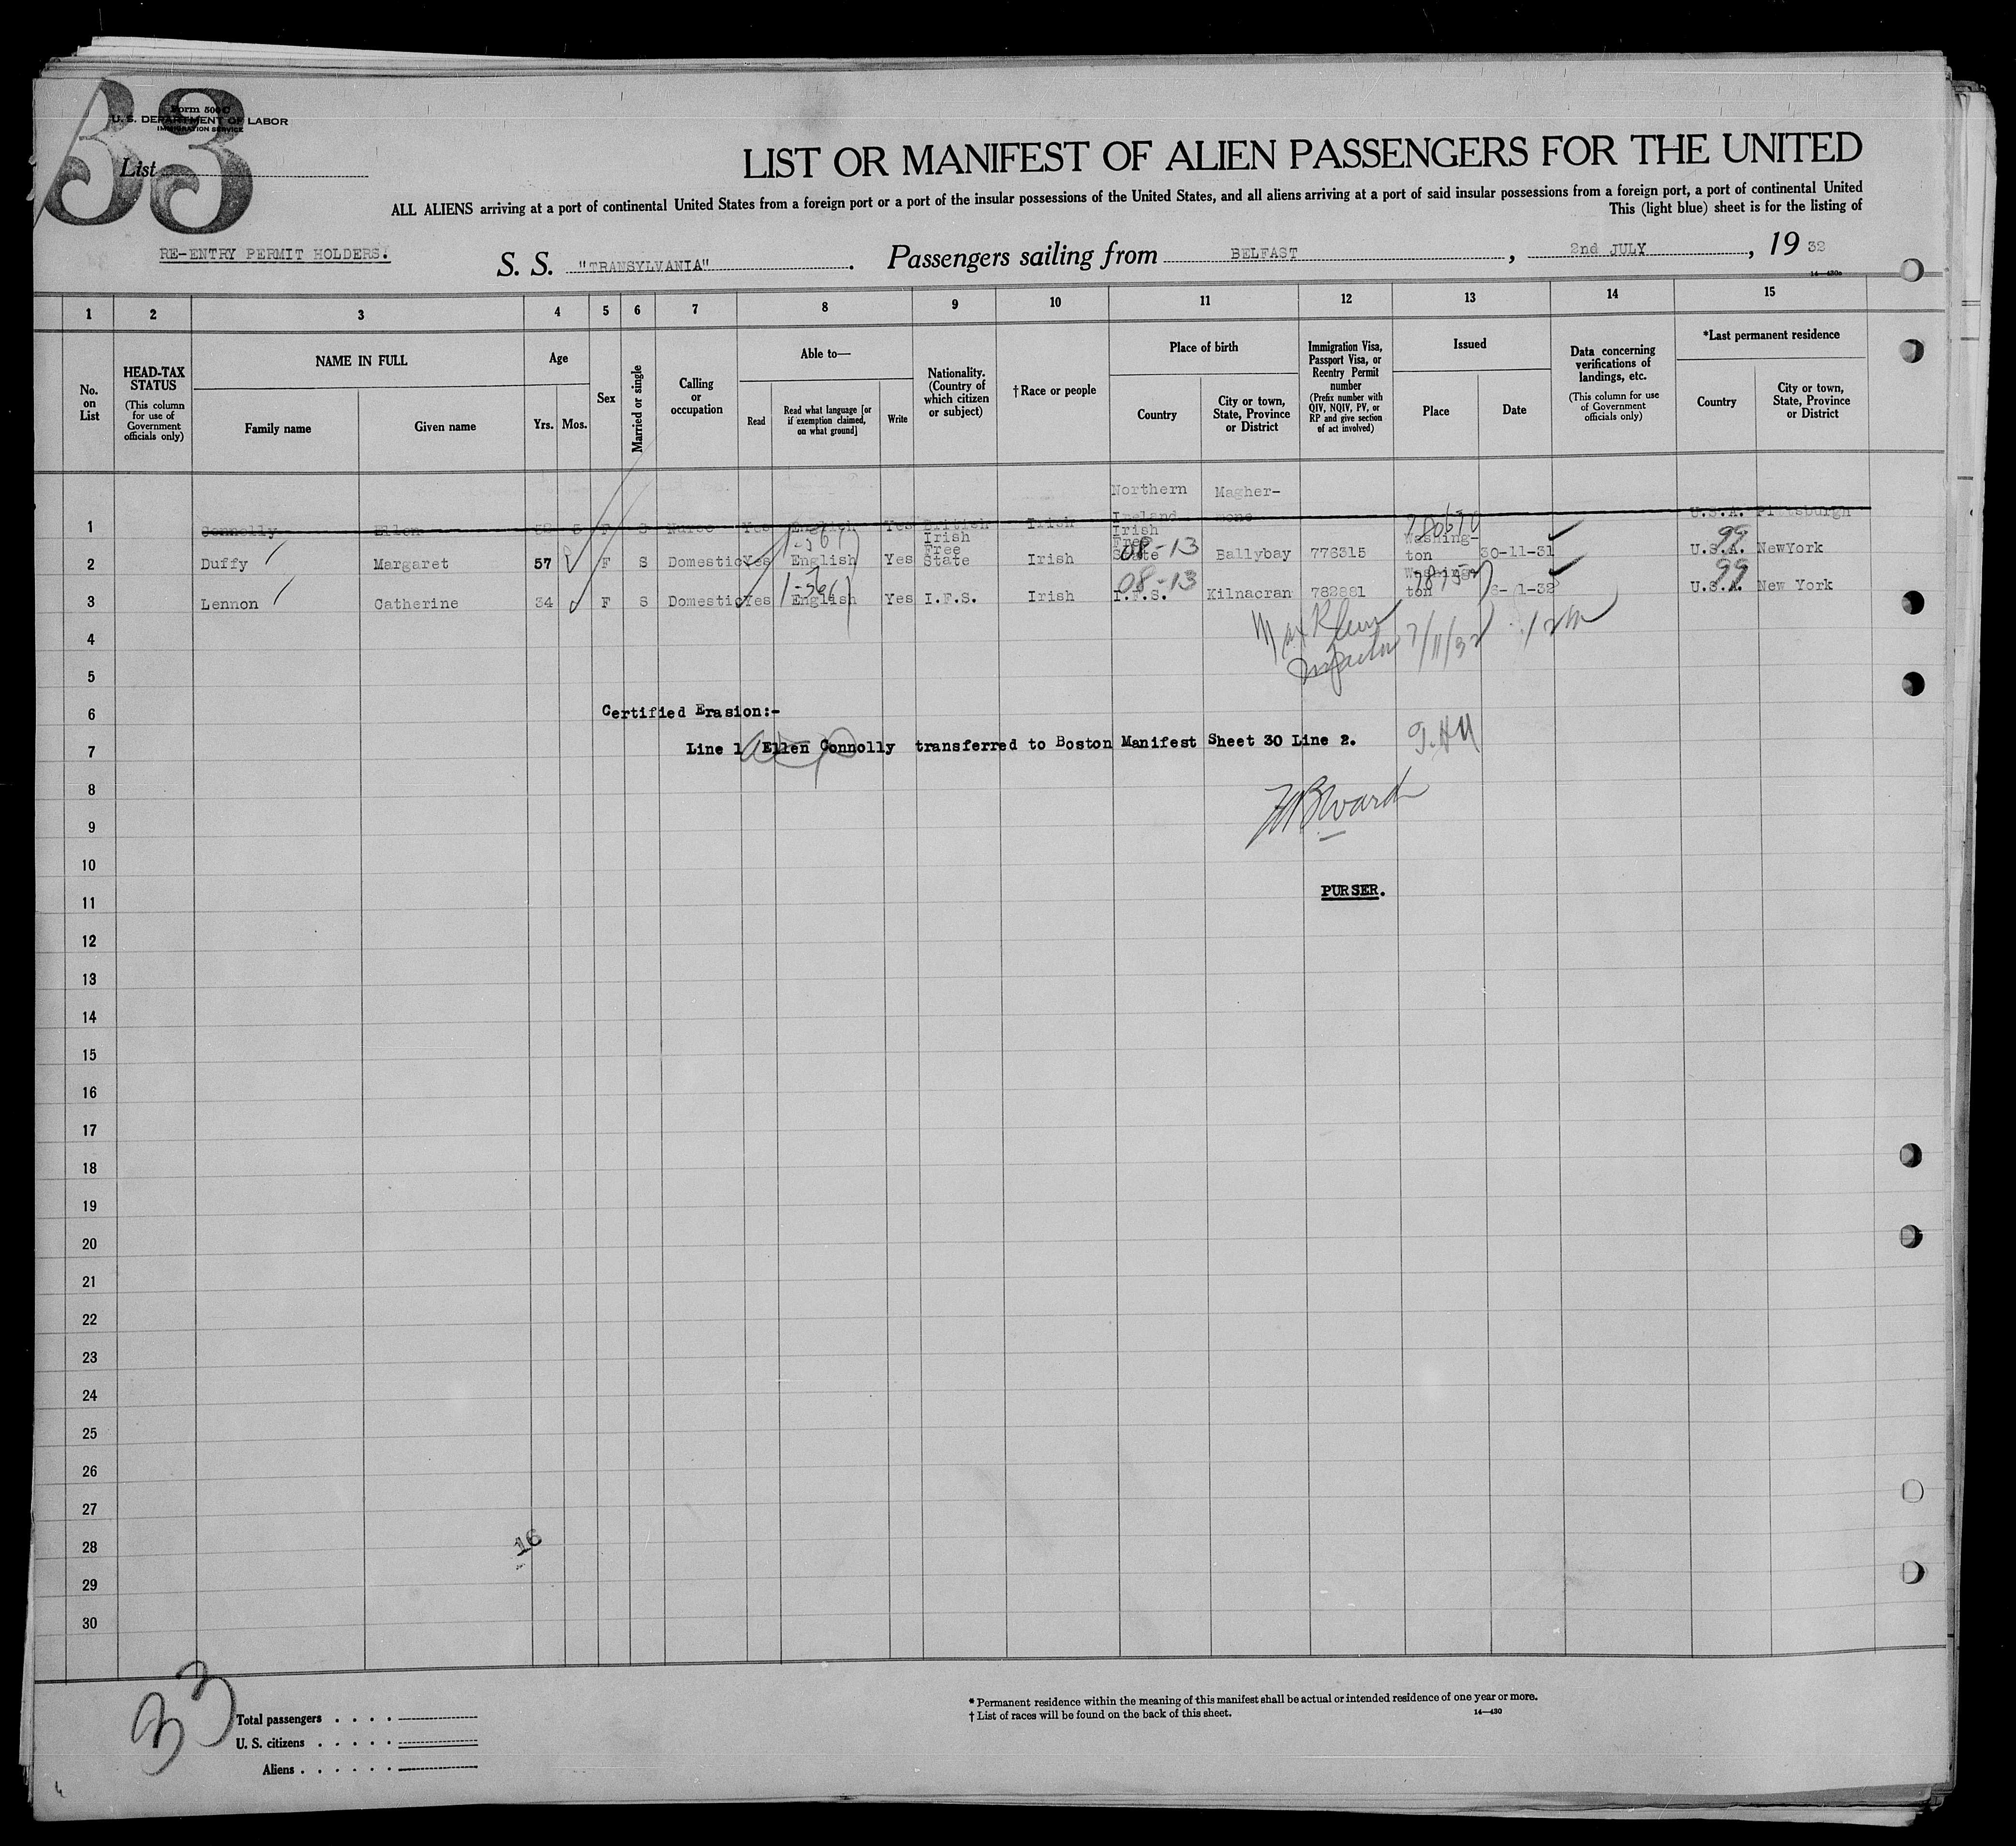 33
Form 500 C
U. S. DEPARTMENT OF LABOR
IMMIGRATION SERVICE
List
LIST OR MANIFEST OF ALIEN PASSENGERS FOR THE UNITED
ALL ALIENS arriving at a port of continental United States from a foreign port or a port of the insular possessions of the United States, and all aliens arriving at a port of said insular possessions from a foreign port, a port of continental United
This (light blue) sheet is for the listing of
RE-ENTRY PERMIT HOLDERS.
S. S. "TRANSYLVANIA". Passengers sailing from BELFAST, 2nd JULY, 19 32
14—430a
1 2 3 4 5 6 7 8 9 10 11 12 13 14 15
No. on List
HEAD-TAX STATUS (This column for use of Government officials only)
NAME IN FULL
Family name
Given name
Age
Yrs. Mos.
Sex
Married or single
Calling or occupation
Able to—
Read
Read what language [or if exemption claimed, on what ground]
Write
Nationality. (Country of which citizen or subject)
†Race or people
Place of birth
Country
City or town, State, Province or District
Immigration Visa, Passport Visa, or Reentry Permit number (Prefix number with QIV, NQIV, PV, or RP and give section of act involved)
Issued
Place
Date
Data concerning verifications of landings, etc. (This column for use of Government officials only)
*Last permanent residence
Country
City or town, State, Province or District
1 Connolly Ellen F S Nurse Yes English Yes British Irish Northern Ireland Magher- U.S.A. Pittsburgh
2 Duffy Margaret 57 F S Domestic Yes English Yes Irish Free State Irish Irish Free State 08-13 Ballybay 776315 Washing- ton 30-11-31 U.S.A. 99 NewYork
3 Lennon Catherine 34 F S Domestic Yes English Yes I.F.S. Irish I.F.S. 08-13 Kilnacran 782881 Washing- ton -1-32 U.S.A. 99 New York
4
Max Klein
Inspector 7/11/32
5
6 Certified Erasion:-
7 Line 1 Ellen Connolly transferred to Boston Manifest Sheet 30 Line 2.
8
Ward
9
10
11 PURSER.
12
13
14
15
16
17
18
19
20
21
22
23
24
25
26
27
28
16
29
30
33
Total passengers
U. S. citizens
Aliens
* Permanent residence within the meaning of this manifest shall be actual or intended residence of one year or more.
† List of races will be found on the back of this sheet.
14—430